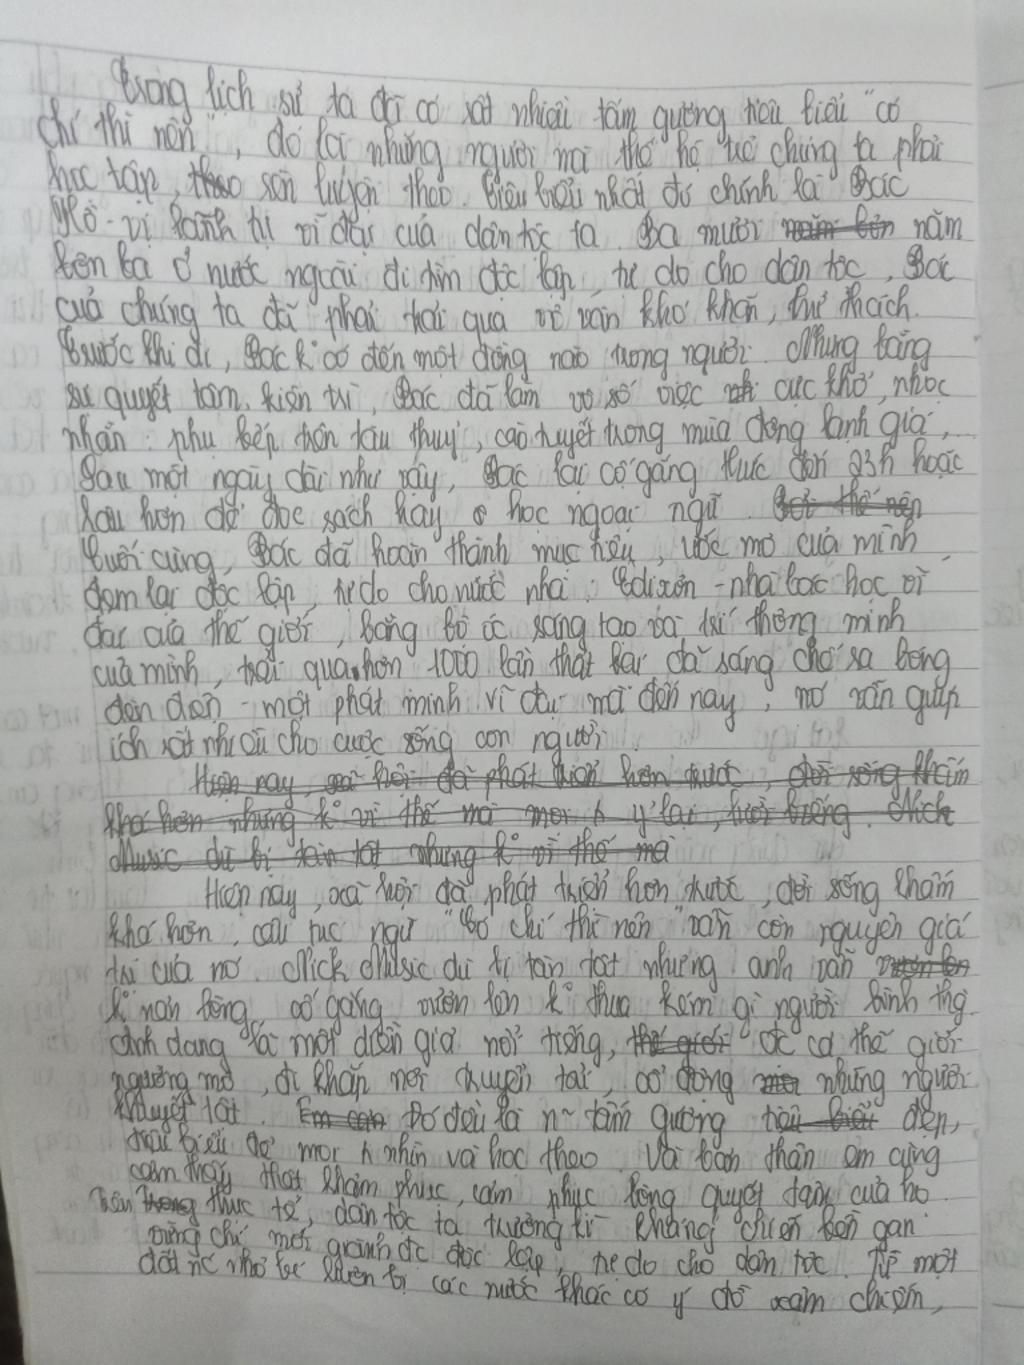 Trong lịch sử ta đã có rất nhiều tấm gương tiêu biểu "có
chí thì nên", đó là những người mà thế hệ trẻ chúng ta phải
học tập, theo rèn luyện theo. Tiêu biểu nhất đó chính là Bác
Hồ - vị lãnh tụ vĩ đại của dân tộc ta. Ba mươi năm bôn năm
bôn ba ở nước ngoài đi tìm độc lập, tự do cho dân tộc, Bác
của chúng ta đã phải trải qua vô vàn khó khăn, thử thách.
Trước khi đi, Bác k có đến một đồng nào trong người. Nhưng bằng
sự quyết tâm, kiên trì, Bác đã làm vô số việc cực khổ, nhọc
nhằn: phụ bếp trên tàu thuỷ, cào tuyết trong mùa đông lạnh giá,
Sau một ngày dài như vậy, Bác lại cố gắng thức đến 23h hoặc
lâu hơn để đọc sách hay học ngoại ngữ. Bởi thế nên
Cuối cùng, Bác đã hoàn thành mục tiêu, ước mơ của mình,
đem lại độc lập, tự do cho nước nhà. Edixơn - nhà bác học vĩ
đại của thế giới, bằng bộ óc sáng tạo và trí thông minh
của mình, trải qua hơn 1000 lần thất bại đã sáng chế ra bóng
đèn điện - một phát minh vĩ đại mà đến nay, nó vẫn giúp
ích rất nhiều cho cuộc sống con người.
Hiện nay, xã hội đã phát triển hơn trước, đời sống khấm
khá hơn nhưng k vì thế mà mọi ng ỷ lại, lười biếng. Nick
Vlusic dù bị tàn tật nhưng k vì thế mà
Hiện nay, xã hội đã phát triển hơn trước, đời sống khấm
khá hơn, câu tục ngữ "Có chí thì nên" vẫn còn nguyên giá
trị của nó. Nick Vlusic dù bị tàn tật nhưng anh vẫn vươn lên
k nản lòng, cố gắng vươn lên k thua kém gì người bình thg.
Anh đang là một diễn giả nổi tiếng, thế giới đc cả thế giới
ngưỡng mộ, đi khắp nơi truyền tải, cổ động những người
khuyết tật. Em cảm Đó đều là n~ tấm gương tiêu biểu đẹp,
tiêu biểu để mọi ng nhìn và học theo. Và bản thân em cũng
cảm thấy thật khâm phục, cảm phục lòng quyết tâm của họ.
Trên Trong thực tế, dân tộc ta trường kì kháng chiến bền gan
vững chí mới giành đc độc lập, tự do cho dân tộc. Từ một
đất nc nhỏ bé luôn bị các nước khác có ý đồ xâm chiếm,